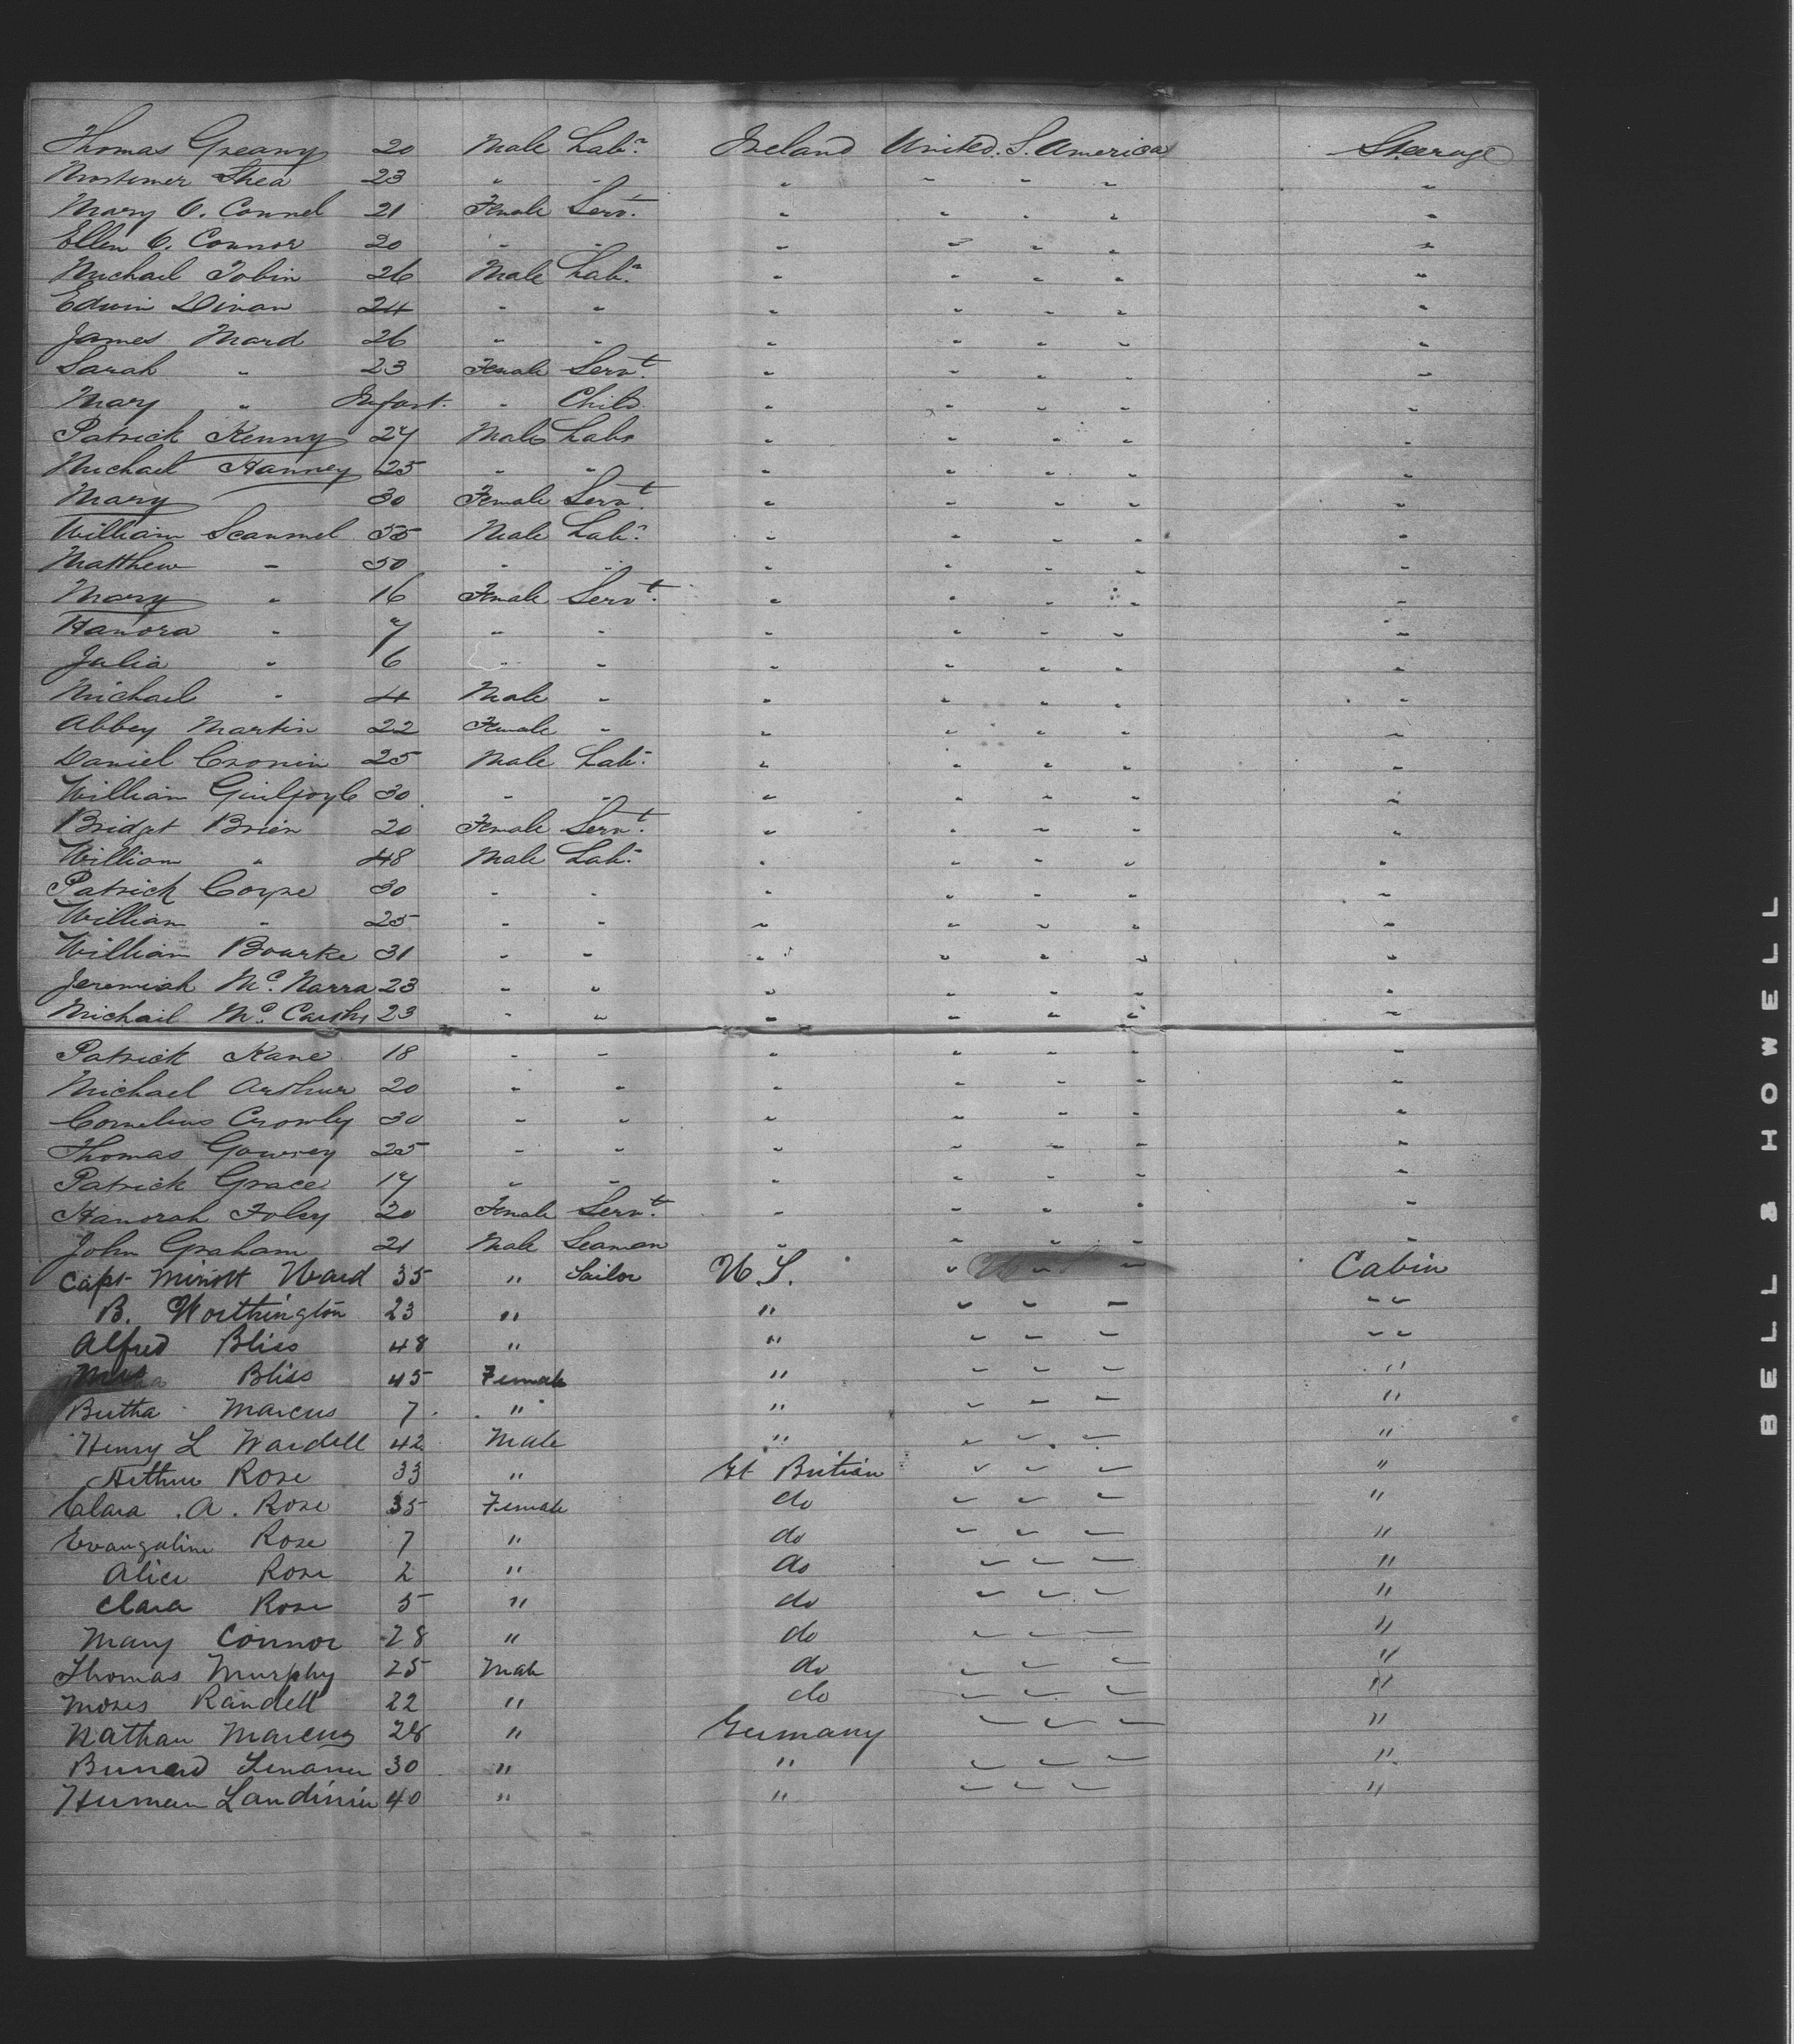 Thomas Greany 20 Male Labr. Ireland United. S. America Steerage
Mortimer Shea 23 " " " " " " "
Mary O. Connel 21 Female Serv. " " " " "
Ellen O. Connor 20 " " " " " " "
Michael Tobin 26 Male Labr. " " " " "
Edwin Divan 24 " " " " " " "
James Ward 26 " " " " " " "
Sarah " 23 Female Servt. " " " " "
Mary " Infant. " Child " " " " "
Patrick Kenny 27 Male Labr " " " " "
Michael Hanney 25 " " " " " " "
Mary 30 Female Servt. " " " " "
William Scanmel 35 Male Labr. " " " " "
Matthew " 50 " " " " " " "
Mary " 16 Female Servt. " " " " "
Hanora " 7 " " " " " " "
Julia " 6 " " " " " " "
Michael " 4 Male " " " " " "
Abbey Martin 22 Female " " " " " "
Daniel Cronin 25 Male Labr. " " " " "
William Guilfoyle 30 " " " " " " "
Bridget Brien 20 Female Servt. " " " " "
William " 48 Male Labr. " " " " "
Patrick Coyne 30 " " " " " " "
William " 25 " " " " " " "
William Bourke 31 " " " " " " "
Jeremiah Mc. Narra 23 " " " " " " "
Michail Mc. Carthy 23 " " " " " " "
Patrick Kane 18 " " " " " " "
Michael Arthur 20 " " " " " " "
Cornelius Crowley 30 " " " " " " "
Thomas Gowrey 25 " " " " " " "
Patrick Grace 17 " " " " " " "
Hanorah Foley 20 Female Servt. " " " " "
John Graham 21 Male Seaman " " " " "
Capt Minott Ward 35 " Sailor U.S. " " " Cabin
B. Worthington 23 " " " " " " "
Alfred Bliss 48 " " " " " " "
Bliss 45 Female " " " " "
Butha Marcus 7 " " " " " "
Henry L Wardell 42 Male " " " " "
Arthur Rose 33 " Gt Britian " " " "
Clara . A . Rose 35 Female do " " " "
Evangaline Rose 7 " do " " " "
Alice Rose 2 " do " " " "
Clara Rose 5 " do " " " "
Mary Connor 28 " do " " " "
Thomas Murphy 25 Male do " " " "
Moses Randell 22 " do " " " "
Nathan Marcus 28 " Germany " " " "
30 " " " " " "
Herman 40 " " " " " "
BELL & HOWELL